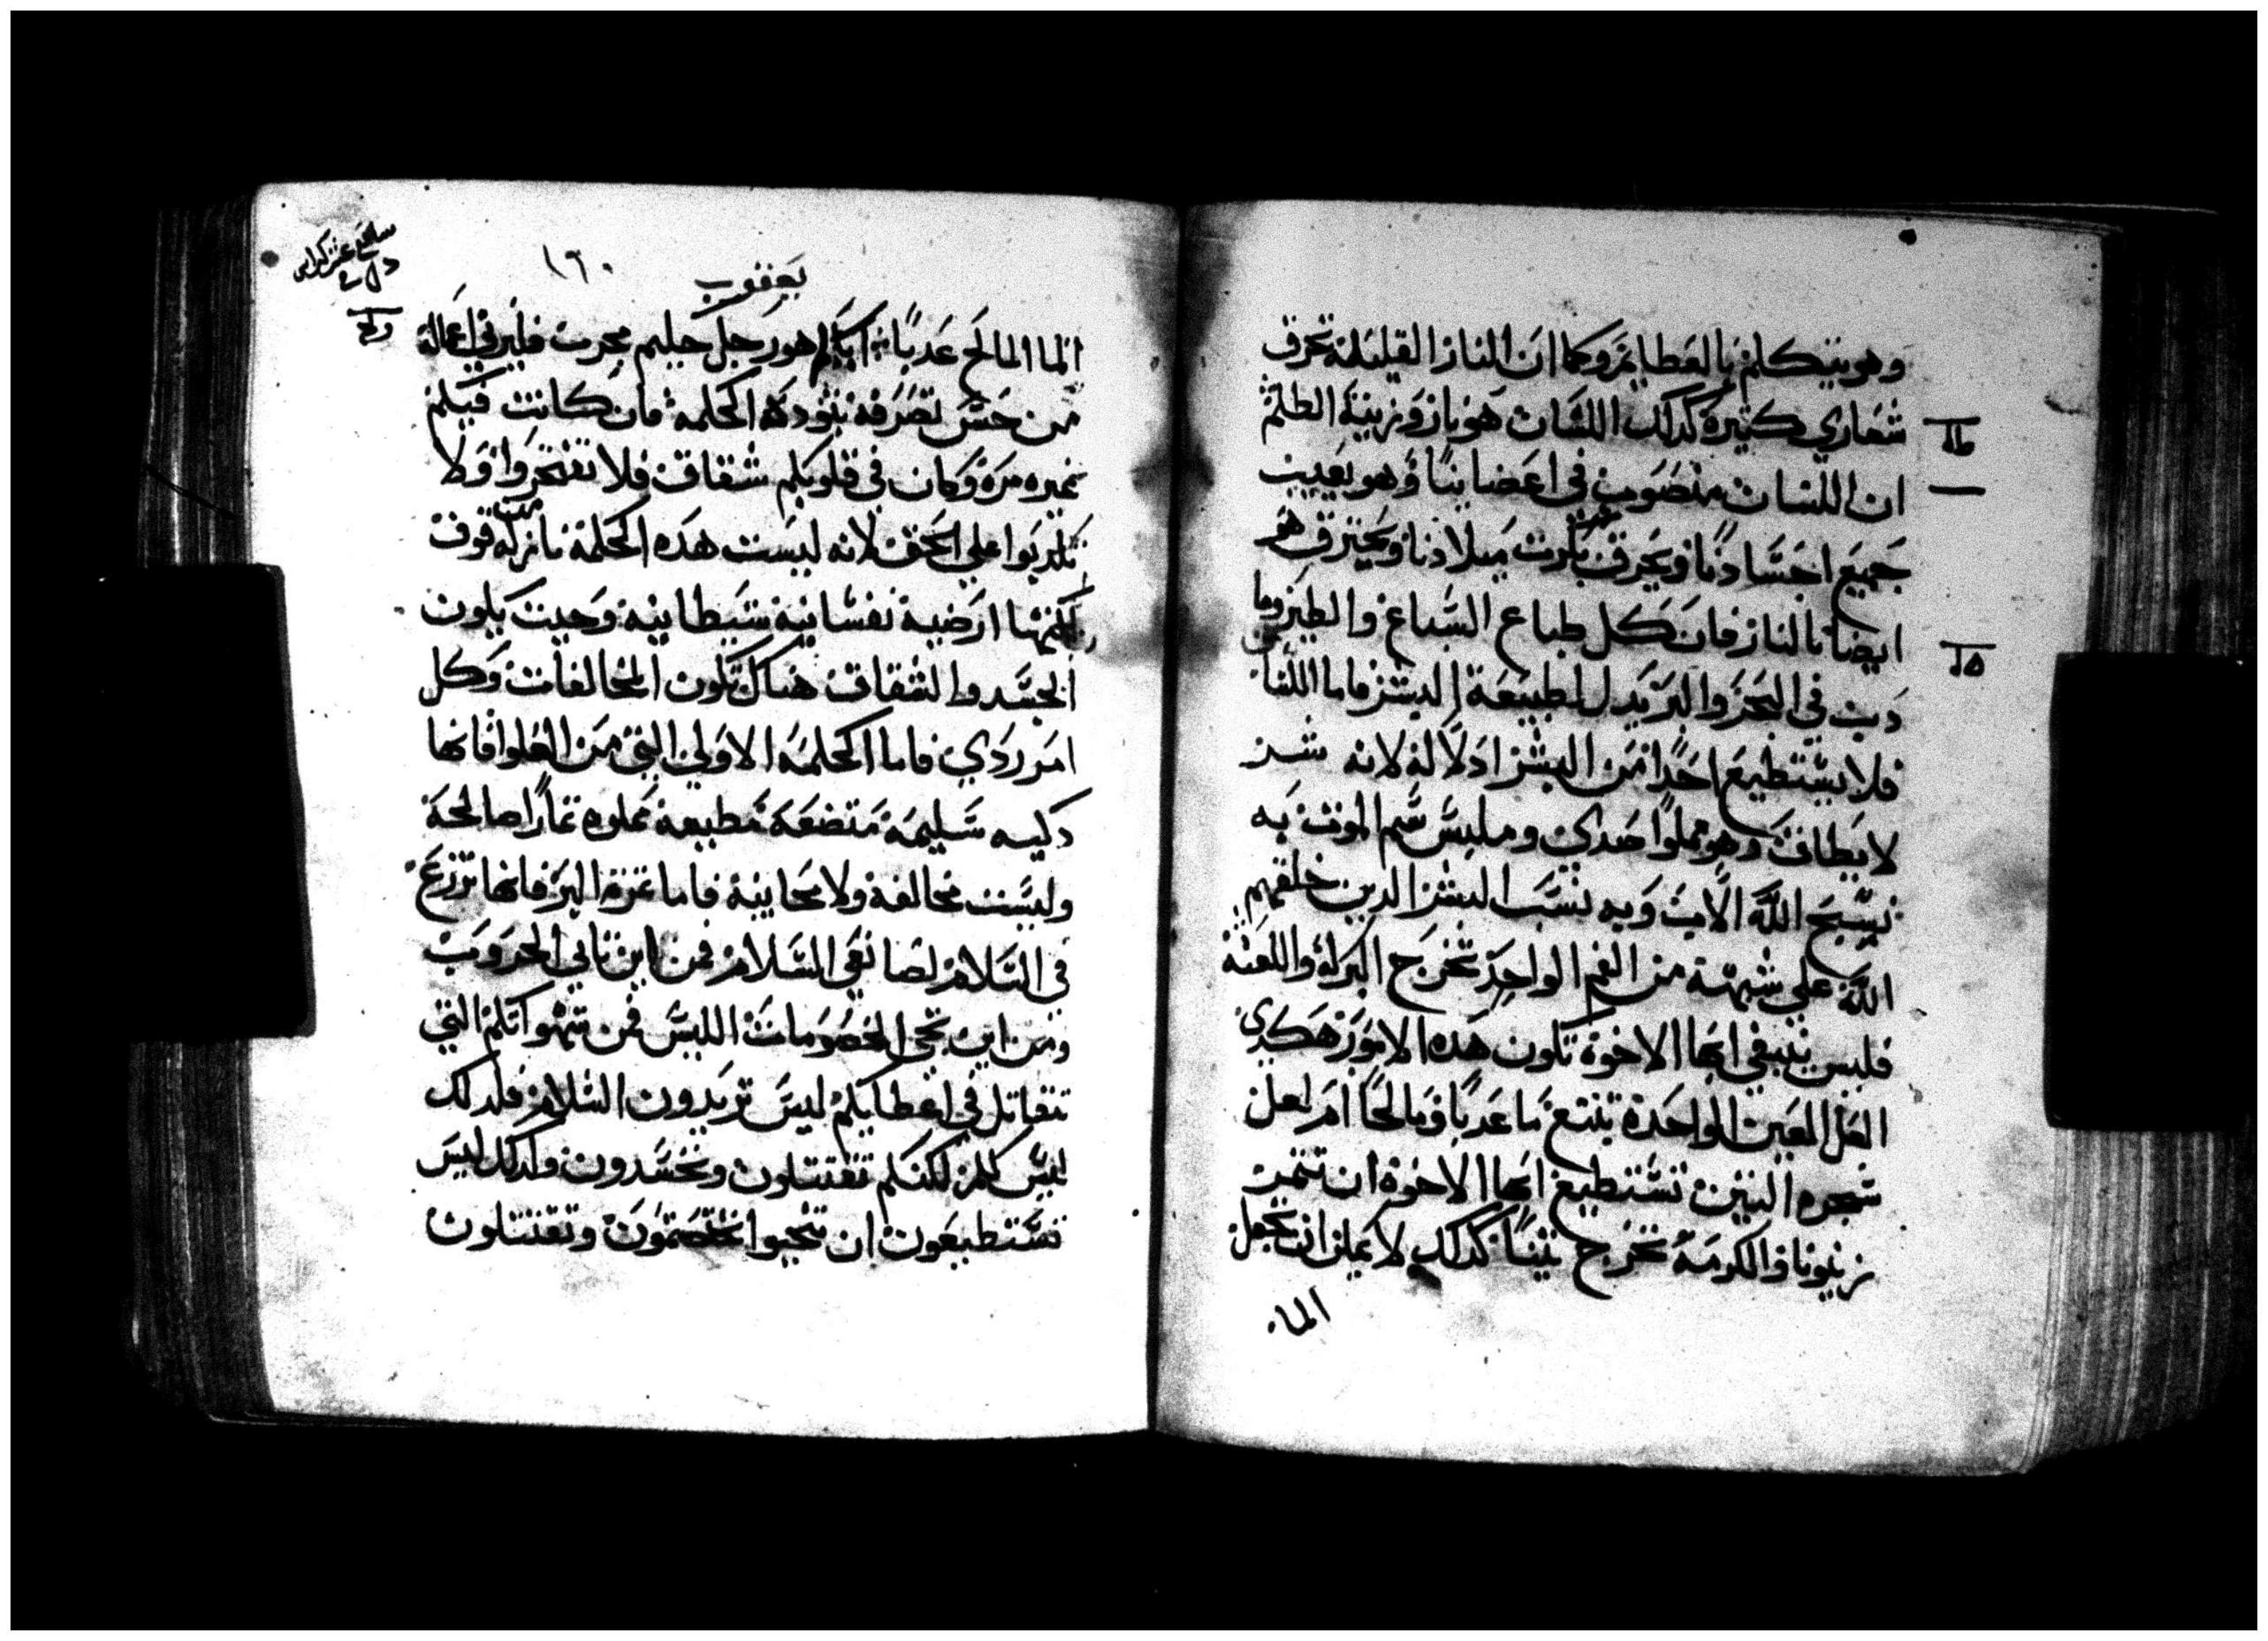 وهو يتكلم بالعظايم وكما ان النار القليله تحرق
شعاري كتيره كدلك اللسان هو نار وزينة الظلم
ان اللسان منصوب في اعضاينا وهو يعيب
جميع اجسادنا ويحرق بكرت ميلادنا ويحترق هو
ايضا بالنار فان كل طباع السباع والطير وما
دب في البحر والبر يدل لطبيعة البشر فاما اللسان
فلا يستطيع احدا من البشر ادلاله لانه شر
لا يطاق وهو مملوا وملبس سم الموت به
نسبح الله الاب وبه نسب البشر الدين خلقهم
الله على شبهه من الفم الواحد تخرج البركه واللعنه
فليس ينبغي ايها الاخوة تكون هده الامور هكدى
لعل العين الواحدة تنبع ما عدبا ومالحا ام لعل
شجره التين تستطيع ايها الاخوة ان تتمر
زيتونا والكرمه تخرج تينا كدلك لا يمكن ان تجعل
الما
يعقوب
١٦٠
الما المالح عدبا ايكم هو رجل حليم مجرب فليرني اعماله
من حسن تصرفه بتودة الحكمه فان كانت فيكم
غيره مره وكان في قلوبكم شقاق فلا تفتخروا ولا
تكدبوا على الحق لانه ليست هده الحكمة نازله من فوق
لكنها ارضيه نفسانيه شيطانيه وحيت يكون
الحسد والشقاق هناك تكون المخالفات وكل
امر ردي فاما الحكمه الاولي التي من العلوا فانها
دكيه سليمه متضعه مطيعه مملوه تمارا صالحة
وليست مخالفه ولا محابيه فاما تمرة البر فانها تزرع
في السلام لصانعي السلام فمن اين تاتي الحروب
ومن اين تجي الخصومات اليس من شهواتكم التي
تتقاتل في اعضايكم ليس تريدون السلام فلدلك
ليس لكم لكنكم تقتتلون وتحسدون ولدلك ليس
تستطيعون ان تنجحوا تختصمون وتقتتلون